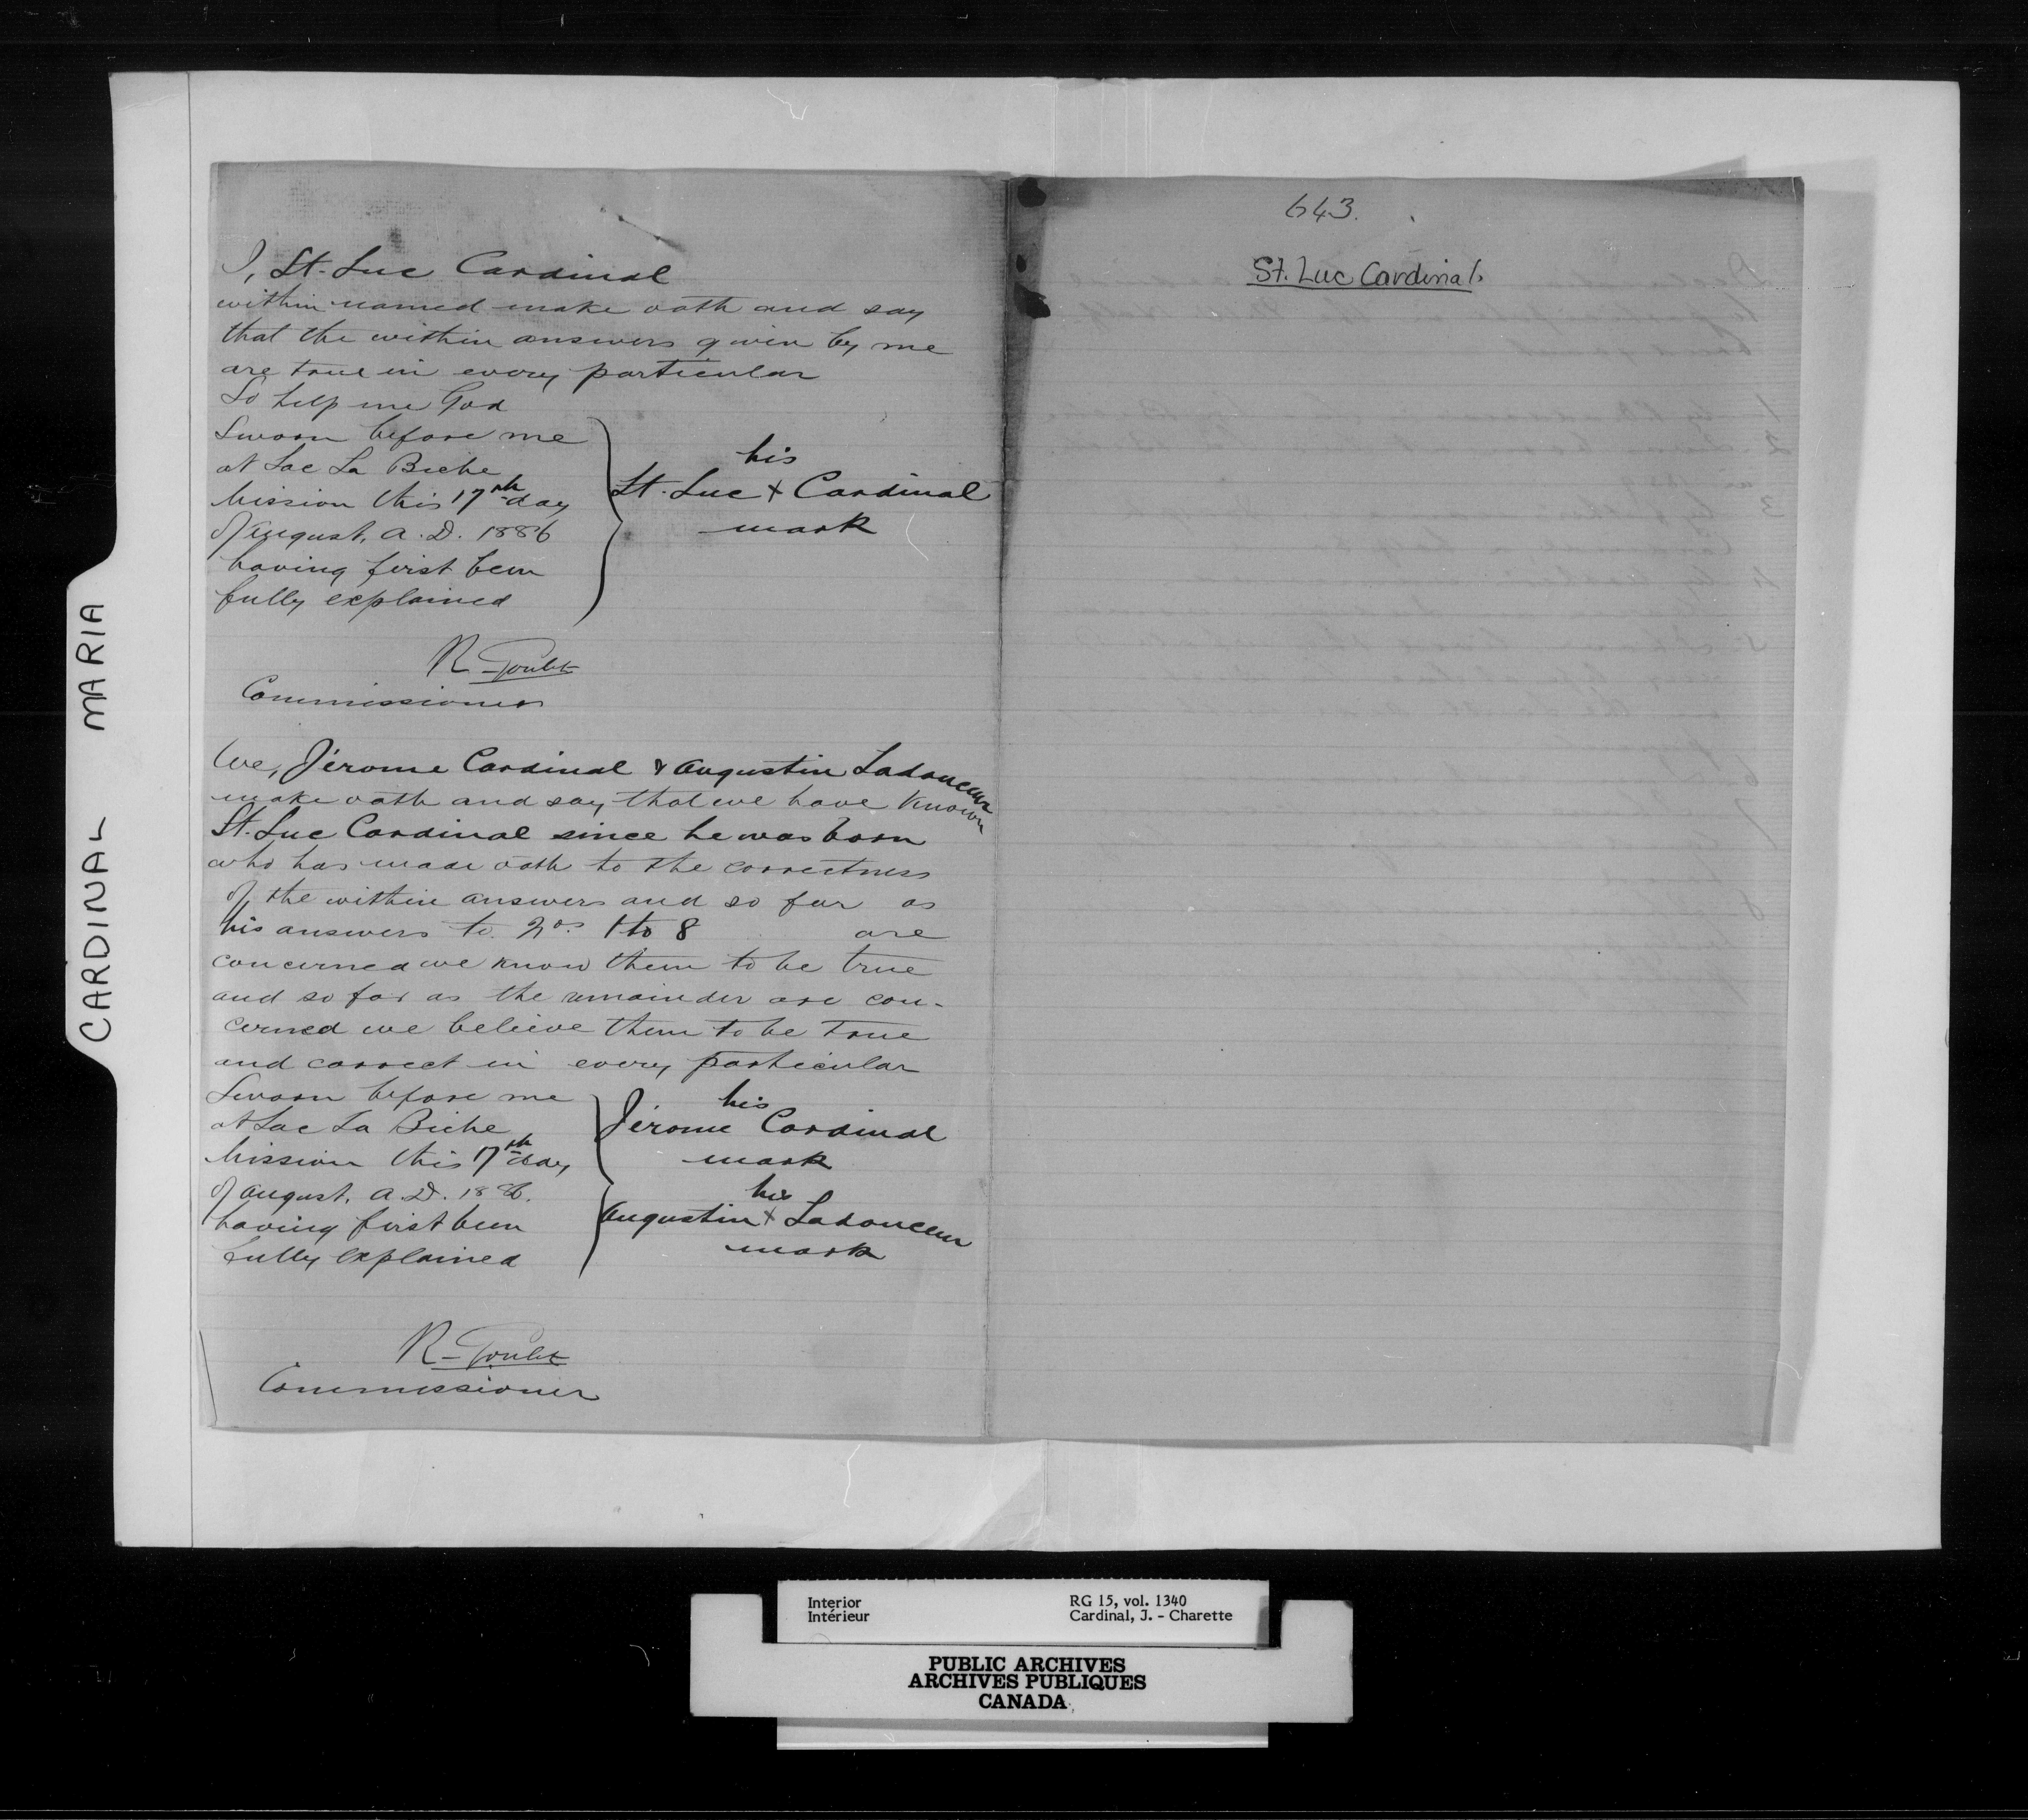 I, St. Luc Cardinal
within named make oath and say
that the within answers given by me
are true in every particular
So help me God
Sworn before me
at Lac La Biche
Mission this 17th day
of August, A.D. 1886
having first been
fully explained
his
St. Luc + Cardinal
mark
R. Goulet
Commissioner
We, Jérome Cardinal & Augustin Ladouceur
make oath and say that we have known
St. Luc Cardinal since he was born
who has made oath to the correctness
of the within answers and so far as
his answers to Nos. 1 to 8 are
concerned we know them to be true
and so far as the remainder are con-
cerned we believe them to be true
and correct in every particular
Sworn before me
at Lac La Biche
Mission this 17th day
of August, A.D. 1886.
having first been
fully explained
his
Jérome Cardinal
mark
his
Augustin + Ladouceur
mark
R. Goulet
Commissioner
643.
St. Luc Cardinal.
CARDINAL MARIA
Interior
Intérieur
RG 15, vol. 1340
Cardinal, J. - Charette
PUBLIC ARCHIVES
ARCHIVES PUBLIQUES
CANADA